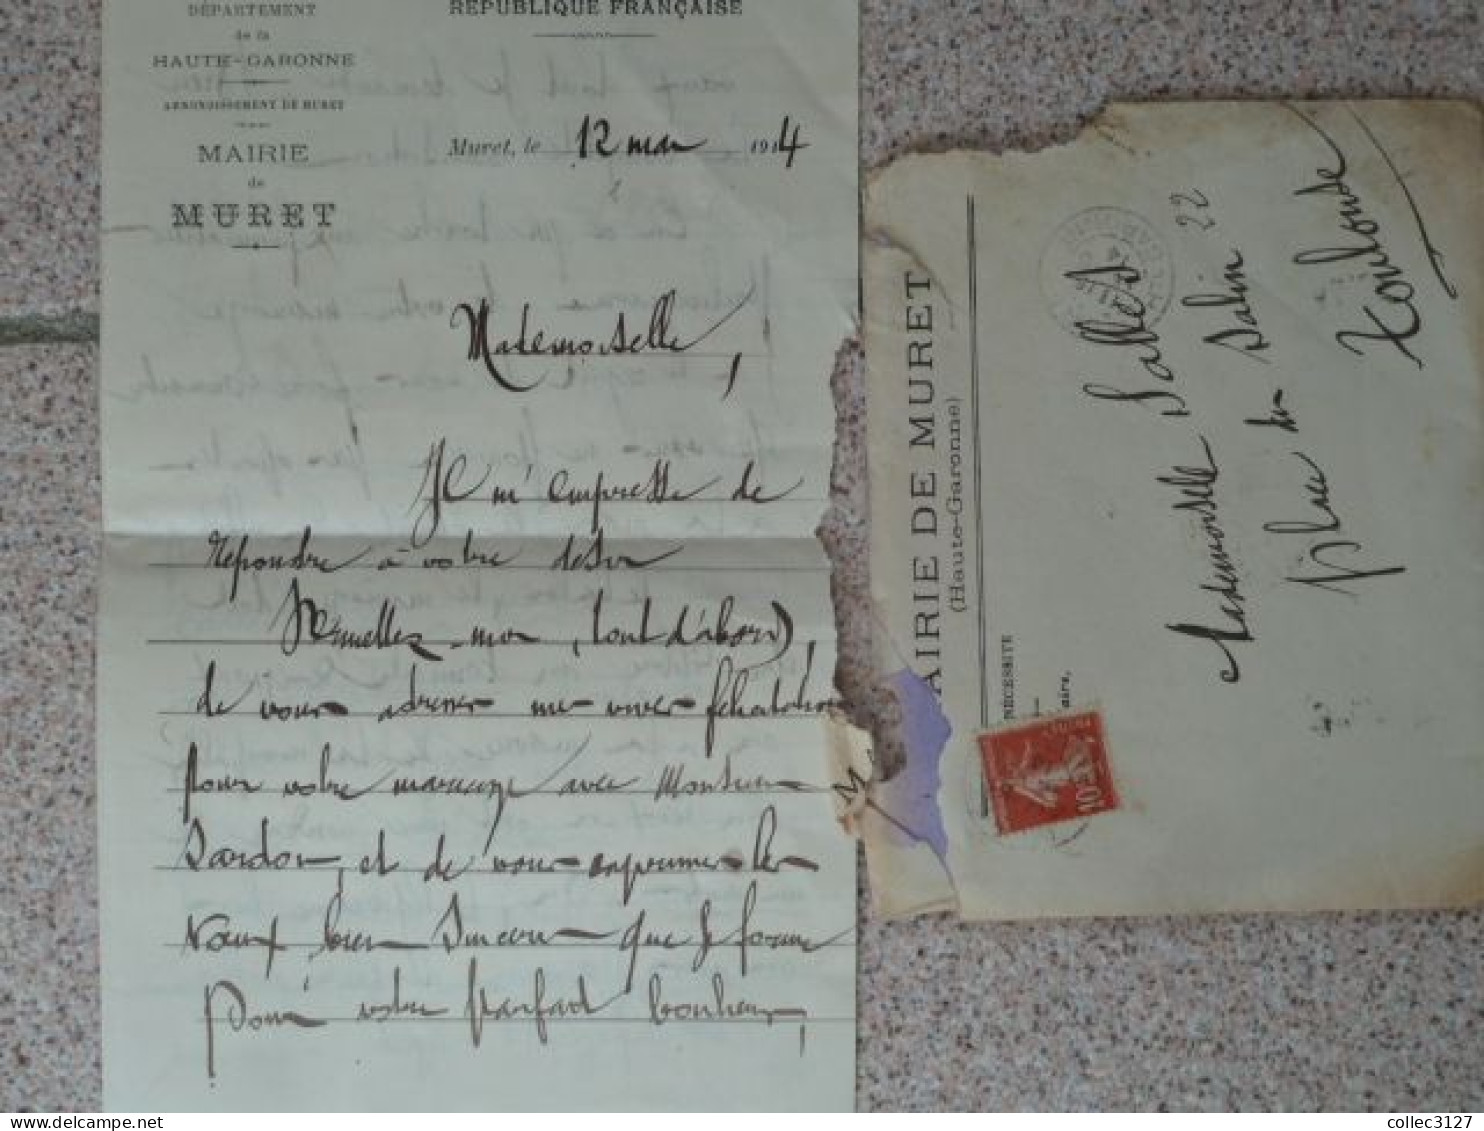 DÉPARTEMENT
de la
HAUTE-GARONNE
ARRONDISSEMENT DE MURET
MAIRIE
de
MURET
RÉPUBLIQUE FRANÇAISE
Muret, le 12 mai 1914
Mademoiselle,
Je m'empresse de
Répondre à votre désir
Permettez-moi, tout d'abord,
de vous adresser me vives félicitations
pour votre mariage avec Monsieur
Sardou, et de vous exprimer les
Vœux bien Sincères que je forme
Pour votre parfait bonheur,
MAIRIE DE MURET
(Haute-Garonne)
NÉCESSITÉ
aire,
Mademoiselle Salles
place du Salin 22
Toulouse
10c
collec3127